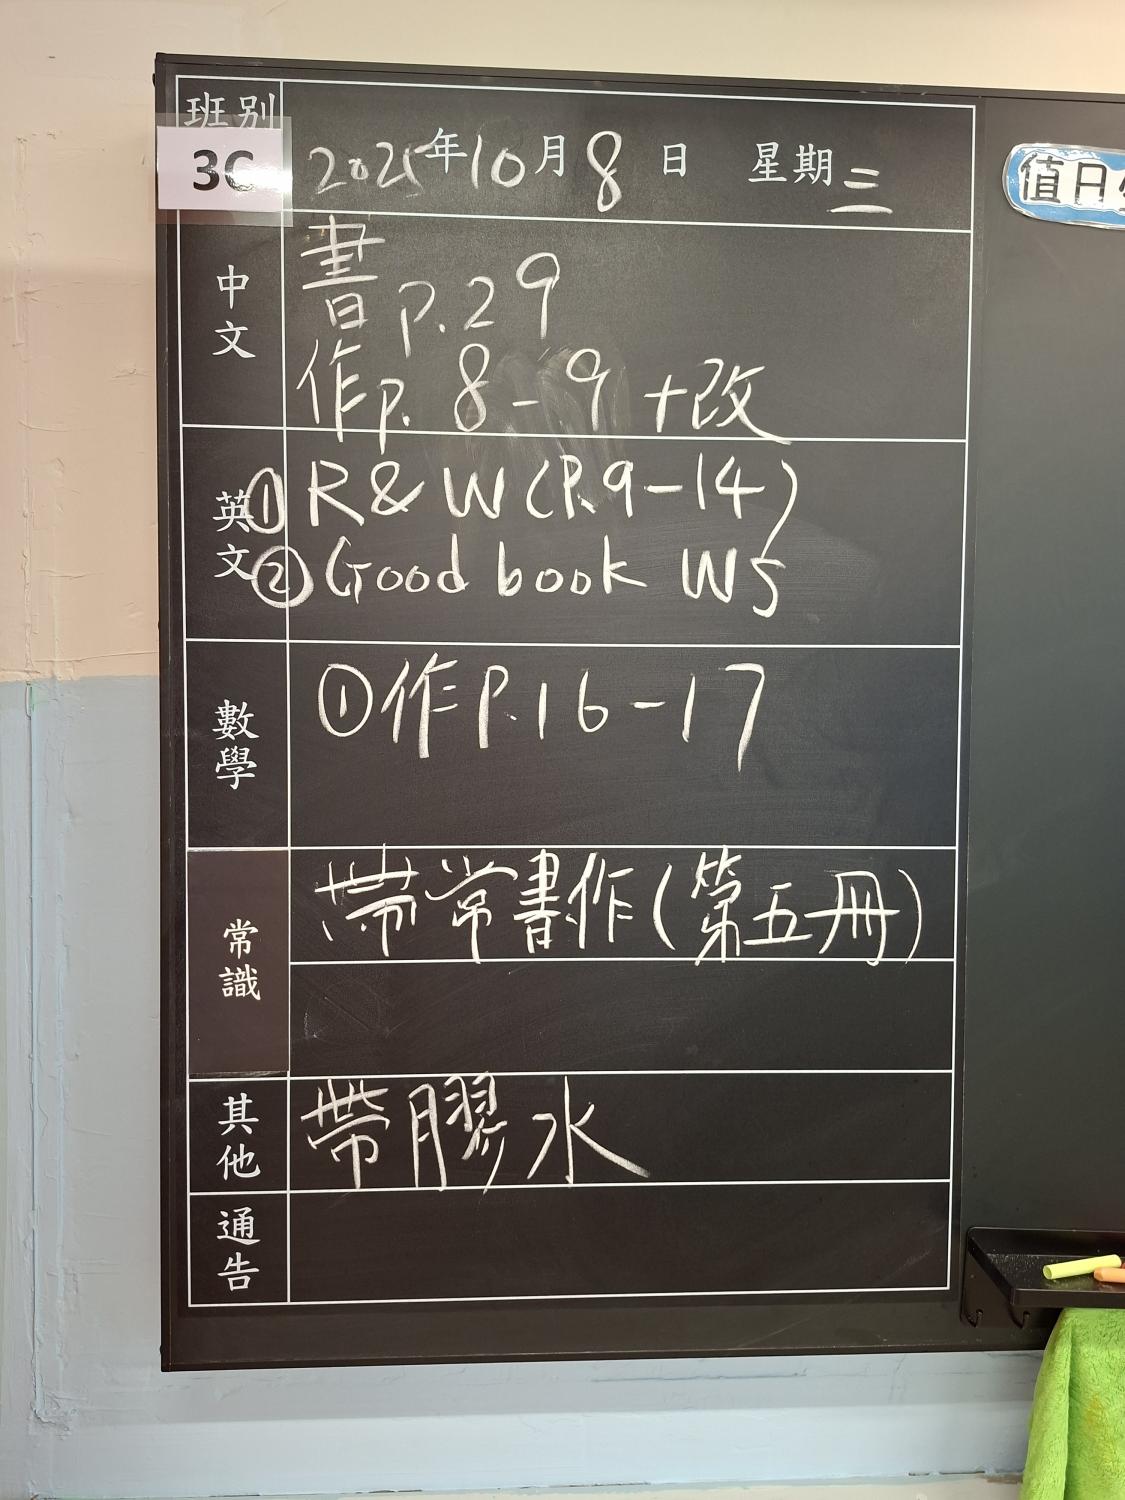 班別
3C
2025年10月8日 星期三
中文
書 p.29
作p. 8-9 +改
英文
① R & W (P.9-14)
② Good book W5
數學
①作P.16-17
常識
帶常書作(第五冊)
其他
帶膠水
通告
值日